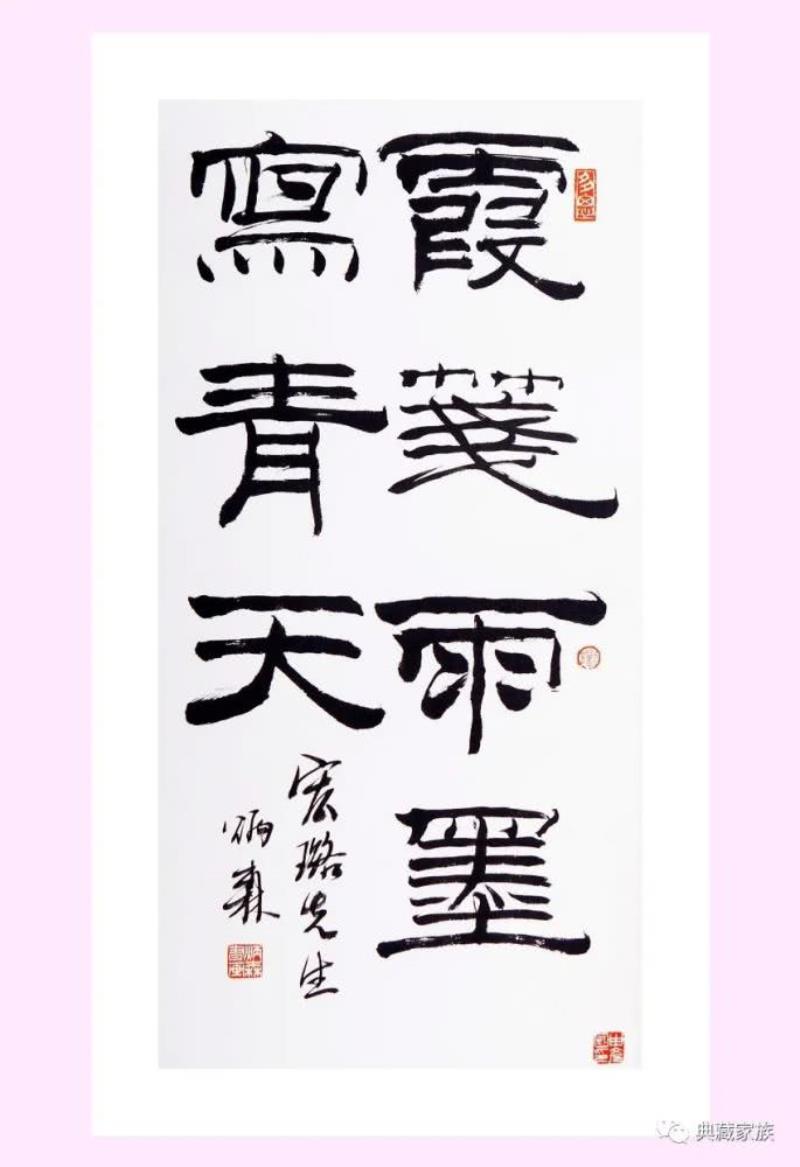 霞箋雨墨
寫青天
宏璐先生
炳森
典藏家族